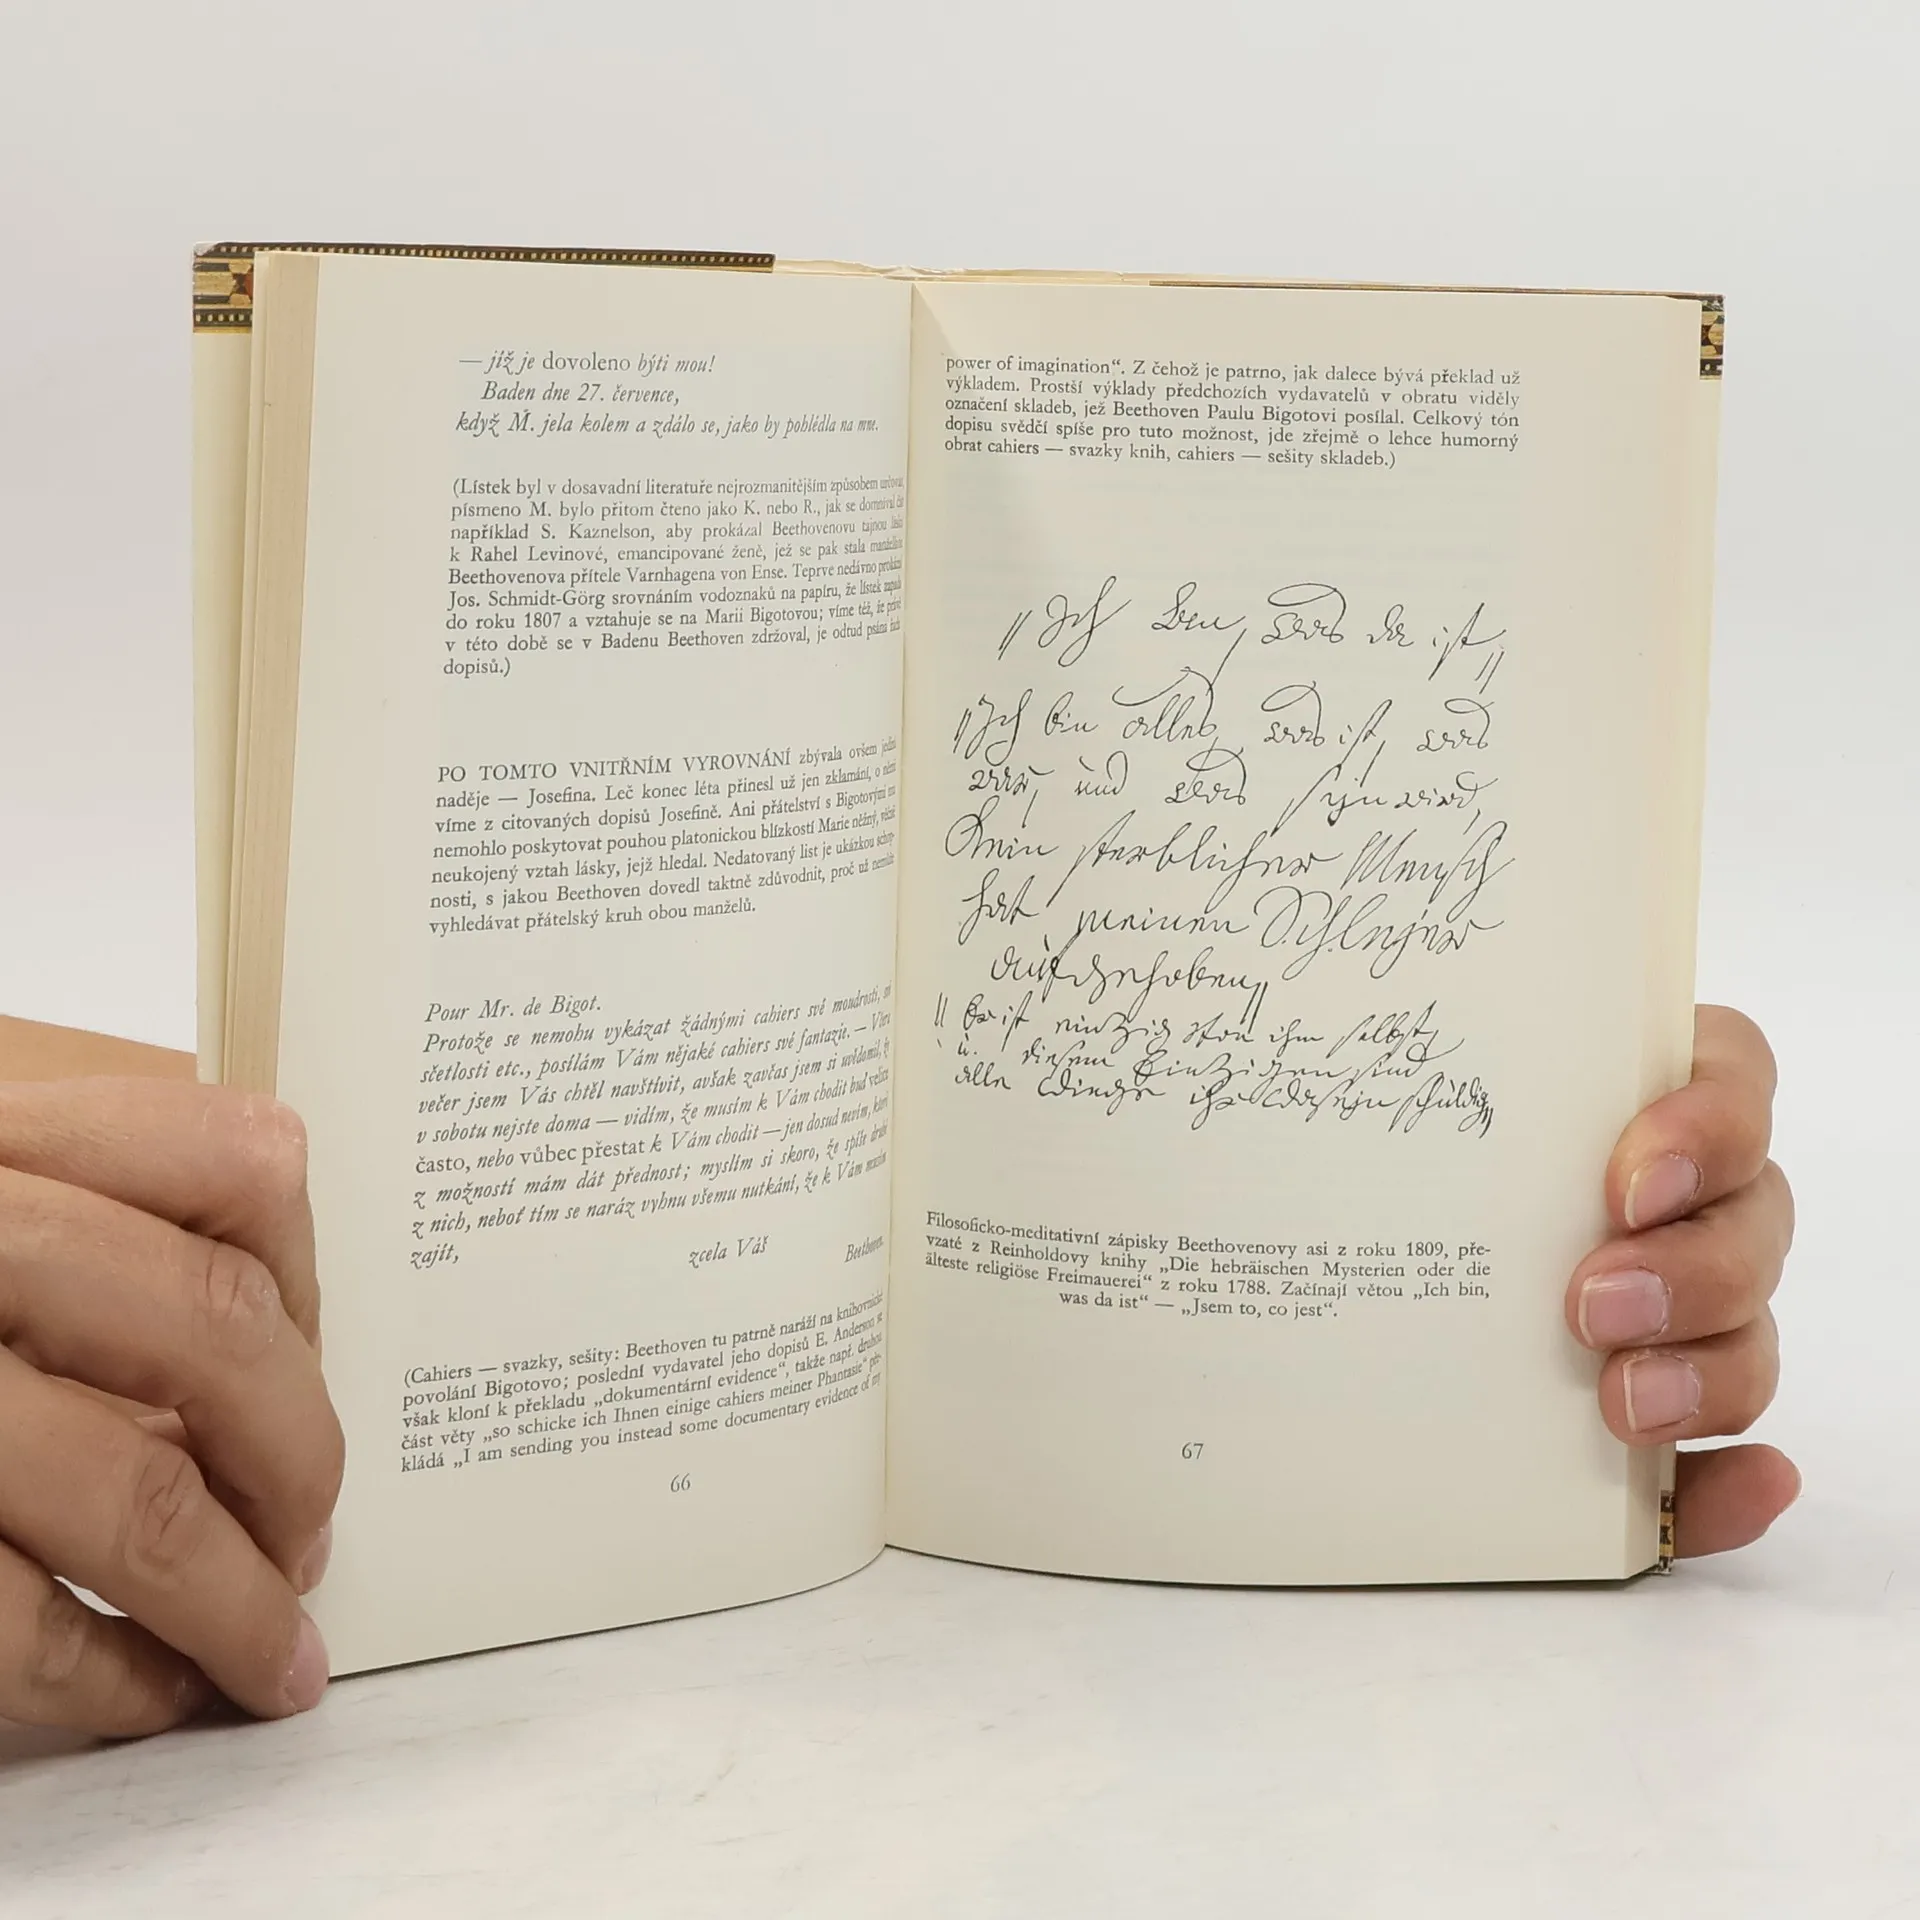 — jíž je dovoleno býti mou!
Baden dne 27. července,
když M. jela kolem a zdálo se, jako by pohlédla na mne.
(Lístek byl v dosavadní literatuře nejrozmanitějším způsobem
písmeno M. bylo přitom čteno jako K. nebo R., jak se domníval
například S. Kaznelson, aby prokázal Beethovenovu tajnou lásku
k Rahel Levinové, emancipované ženě, jež se pak stala manželkou
Beethovenova přítele Varnhagena von Ense. Teprve nedávno prokázal
Jos. Schmidt-Görg srovnáním vodoznaků na papíru, že lístek
do roku 1807 a vztahuje se na Marii Bigotovou; víme též, že právě
v této době se v Badenu Beethoven zdržoval, je odtud psána řada
dopisů.)
PO TOMTO VNITŘNÍM VYROVNÁNÍ zbývala ovšem jediná
naděje — Josefina. Leč konec léta přinesl už jen zklamání, o němž
víme z citovaných dopisů Josefině. Ani přátelství s Bigotovými mu
nemohlo poskytovat pouhou platonickou blízkostí Marie něžný, věčně
neukojený vztah lásky, jejž hledal. Nedatovaný list je ukázkou schop-
nosti, s jakou Beethoven dovedl taktně zdůvodnit, proč už nemůže
vyhledávat přátelský kruh obou manželů.
Pour Mr. de Bigot.
Protože se nemohu vykázat žádnými cahiers své moudrosti, své
sčetlosti etc., posílám Vám nějaké cahiers své fantazie. — Včera
večer jsem Vás chtěl navštívit, avšak zavčas jsem si uvědomil, že
v sobotu nejste doma — vidím, že musím k Vám chodit buď velice
často, nebo vůbec přestat k Vám chodit — jen dosud nevím, které
z možností mám dát přednost; myslím si skoro, že spíše druhé
z nich, neboť tím se naráz vyhnu všemu nutkání, že k Vám musím
zajít,
zcela Váš
Beethoven.
(Cahiers — svazky, sešity: Beethoven tu patrně naráží na knihovnické
povolání Bigotovo; poslední vydavatel jeho dopisů E. Anderson se
však kloní k překladu „dokumentární evidence“, takže např. druhou
část věty „so schicke ich Ihnen einige cahiers meiner Phantasie“ pře-
kládá „I am sending you instead some documentary evidence of my
66
power of imagination“. Z čehož je patrno, jak dalece bývá překlad už
výkladem. Prostší výklady předchozích vydavatelů v obratu viděly
označení skladeb, jež Beethoven Paulu Bigotovi posílal. Celkový tón
dopisu svědčí spíše pro tuto možnost, jde zřejmě o lehce humorný
obrat cahiers — svazky knih, cahiers — sešity skladeb.)
„Ich bin, was da ist„
„Ich bin alles, was ist, was
war, und was seyn wird,
Kein sterblicher Mensch
hat meinen Schlejer
aufgehoben„
„Er ist einzig von ihm selbst,
u. diesem Einzigen sind
alle Dinge ihr Daseyn schuldig„
Filosoficko-meditativní zápisky Beethovenovy asi z roku 1809, pře-
vzaté z Reinholdovy knihy „Die hebräischen Mysterien oder die
älteste religiöse Freimauerei“ z roku 1788. Začínají větou „Ich bin,
was da ist“ — „Jsem to, co jest“.
67